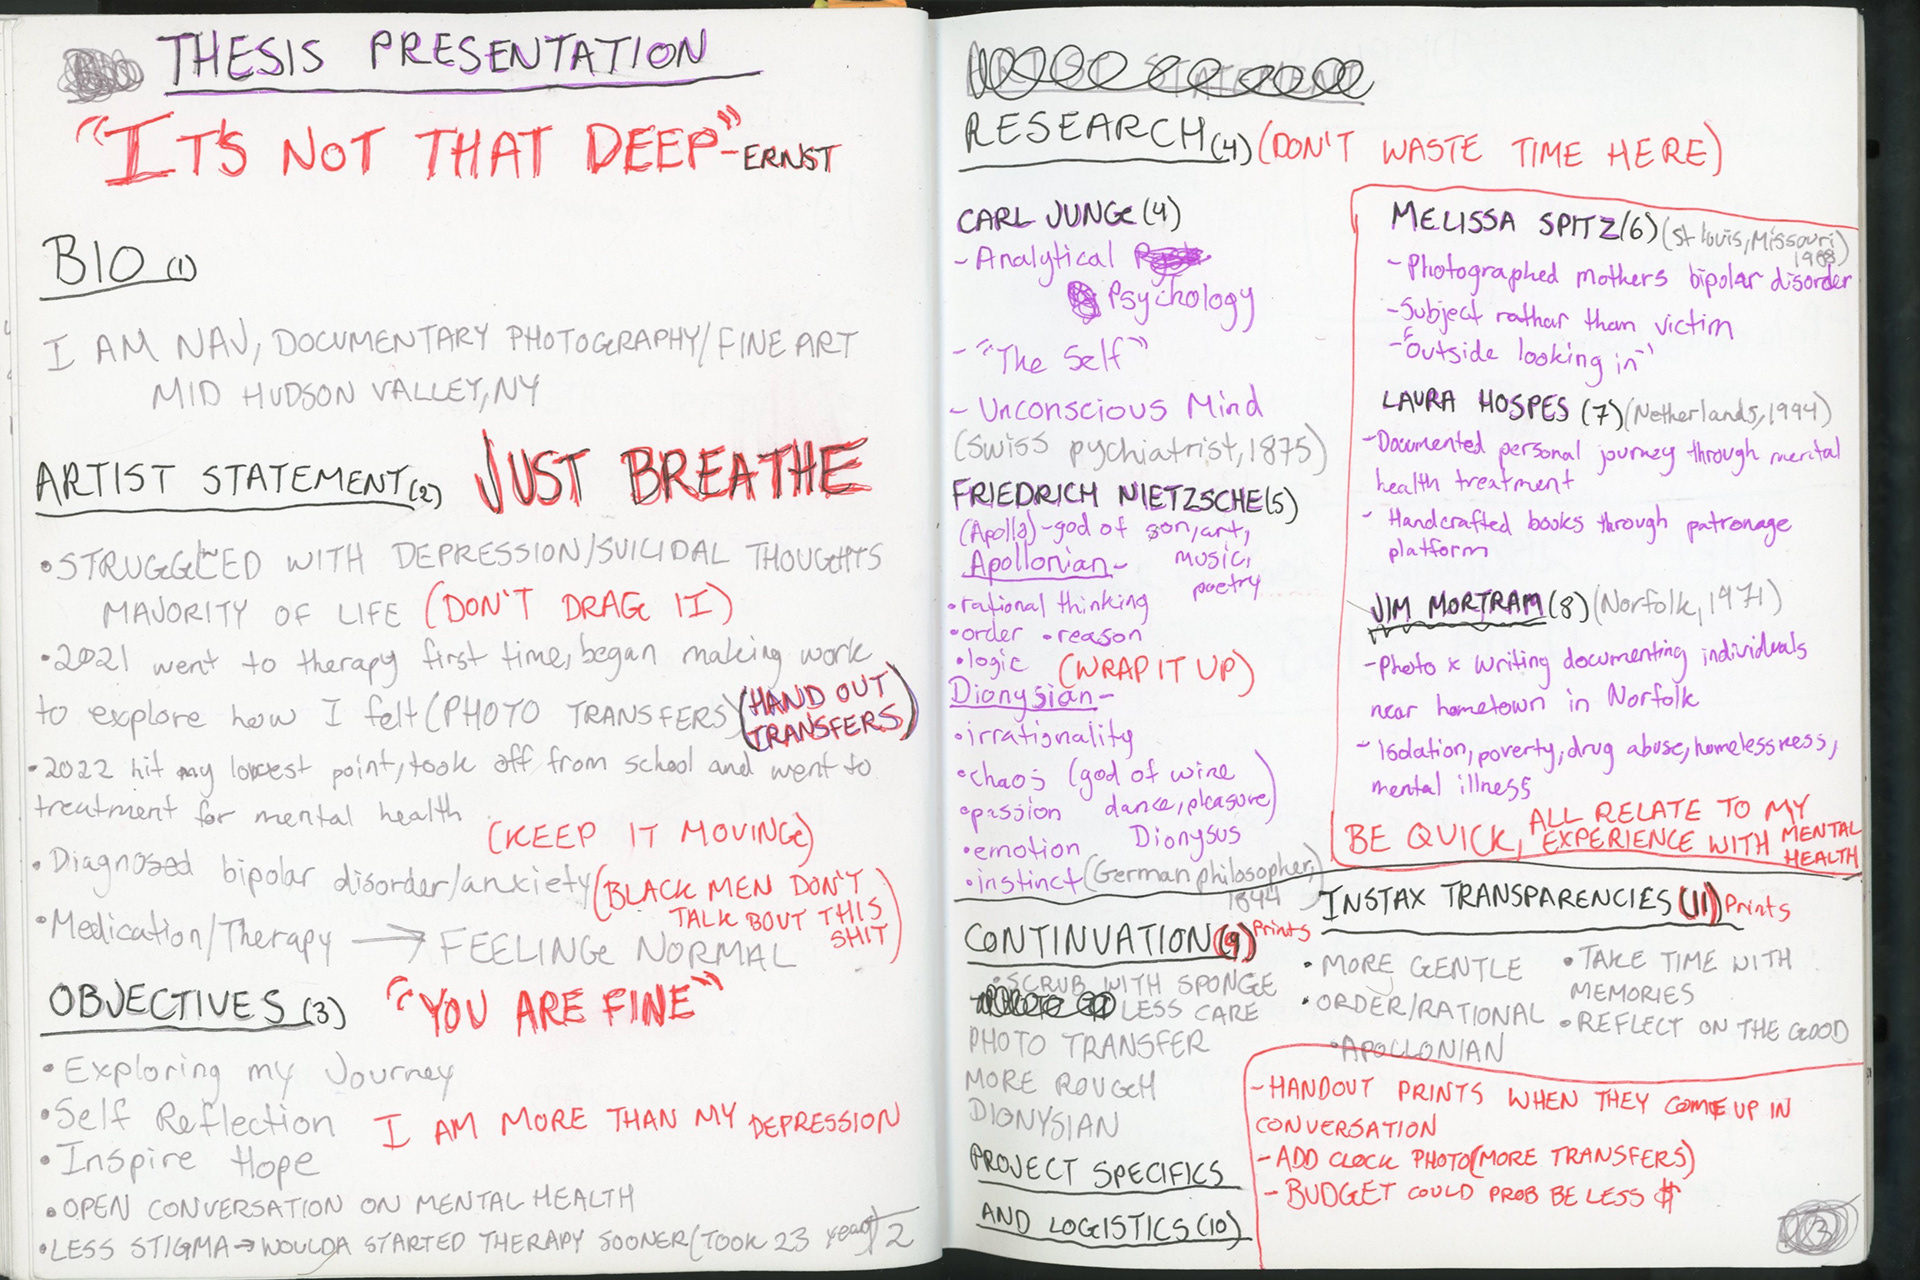 THESIS PRESENTATION
"IT'S NOT THAT DEEP" - ERNST
BIO (1)
I AM NAV, DOCUMENTARY PHOTOGRAPHY/FINE ART
MID HUDSON VALLEY, NY
ARTIST STATEMENT (2) JUST BREATHE
• STRUGGLED WITH DEPRESSION/SUICIDAL THOUGHTS
MAJORITY OF LIFE (DON'T DRAG IT)
• 2021 went to therapy first time, began making work
to explore how I felt (PHOTO TRANSFERS) (HAND OUT
TRANSFERS)
• 2022 hit my lowest point, took off from school and went to
treatment for mental health
(KEEP IT MOVING)
• Diagnosed bipolar disorder/anxiety (BLACK MEN DON'T
TALK BOUT THIS
SHIT)
• Medication/Therapy → FEELING NORMAL
OBJECTIVES (3) "YOU ARE FINE"
• Exploring my Journey
• Self Reflection
I AM MORE THAN MY DEPRESSION
• Inspire Hope
• OPEN CONVERSATION ON MENTAL HEALTH
• LESS STIGMA → WOULDA STARTED THERAPY SOONER (TOOK 23 years)
2
RESEARCH (4) (DON'T WASTE TIME HERE)
CARL JUNG (4)
- Analytical
Psychology
- "The Self"
- Unconscious Mind
(Swiss pychiatrist, 1875)
FRIEDRICH NIETZSCHE (5)
(Apollo) - god of son, art,
music,
poetry
Apollonian -
• rational thinking
• order • reason
• logic (WRAP IT UP)
Dionysian -
• irrationality
• chaos (god of wine
• passion dance, pleasure)
• emotion Dionysus
• instinct (German philosopher,
1844
MELISSA SPITZ (6) (St Louis, Missouri)
1988
- Photographed mothers bipolar disorder
- Subject rathar than victim
- "Outside looking in"
LAURA HOSPES (7) (Netherlands, 1994)
- Documented personal journey through mental
health treatment
- Handcrafted books through patronage
platform
JIM MORTRAM (8) (Norfolk, 1971)
- Photo x Writing documenting individuals
near hometown in Norfolk
- Isolation, poverty, drug abuse, homelessness,
mental illness
BE QUICK, ALL RELATE TO MY
EXPERIENCE WITH MENTAL
HEALTH
CONTINUATION (9) Prints
• SCRUB WITH SPONGE
LESS CARE
PHOTO TRANSFER
MORE ROUGH
DIONYSIAN
INSTAX TRANSPARENCIES (11) Prints
• MORE GENTLE
• ORDER/RATIONAL
• APOLLONIAN
• TAKE TIME WITH
MEMORIES
• REFLECT ON THE GOOD
PROJECT SPECIFICS
AND LOGISTICS (10)
- HANDOUT PRINTS WHEN THEY COME UP IN
CONVERSATION
- ADD CLOCK PHOTO (MORE TRANSFERS)
- BUDGET COULD PROB BE LESS $
3